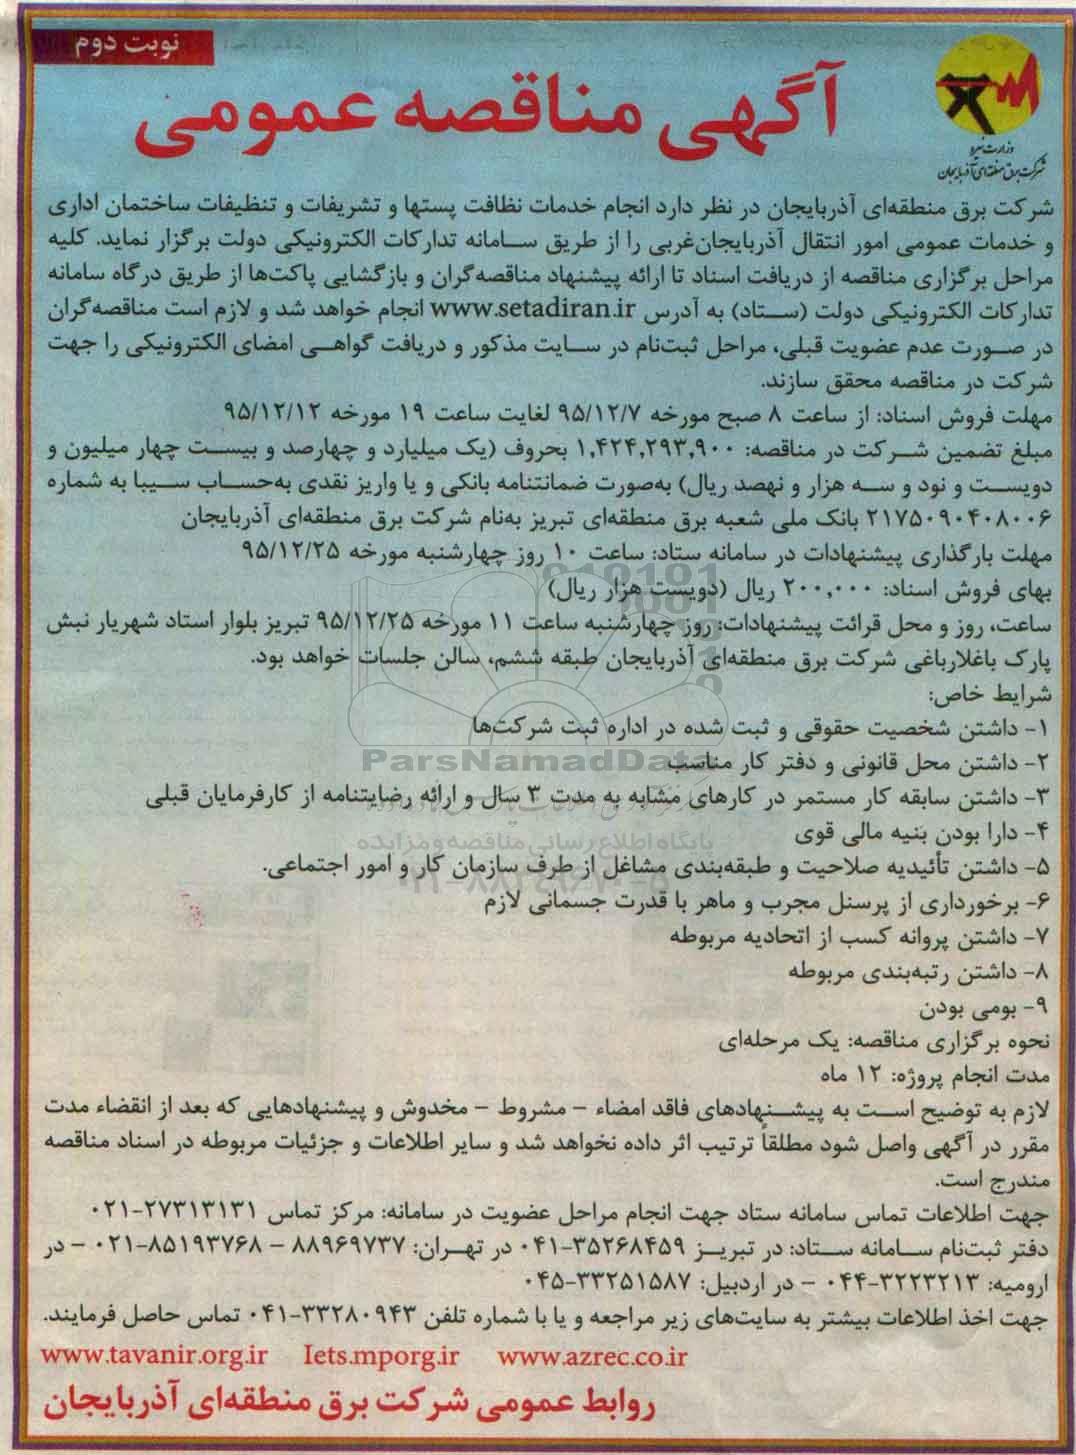 نوبت دوم
آگهی مناقصه عمومی
وزارت نیرو
شرکت برق منطقه‌ای آذربایجان
شرکت برق منطقه‌ای آذربایجان در نظر دارد انجام خدمات نظافت پستها و تشریفات و تنظیفات ساختمان اداری
و خدمات عمومی امور انتقال آذربایجان‌غربی را از طریق سامانه تدارکات الکترونیکی دولت برگزار نماید. کلیه
مراحل برگزاری مناقصه از دریافت اسناد تا ارائه پیشنهاد مناقصه‌گران و بازگشایی پاکت‌ها از طریق درگاه سامانه
تدارکات الکترونیکی دولت (ستاد) به آدرس www.setadiran.ir انجام خواهد شد و لازم است مناقصه‌گران
در صورت عدم عضویت قبلی، مراحل ثبت‌نام در سایت مذکور و دریافت گواهی امضای الکترونیکی را جهت
شرکت در مناقصه محقق سازند.
مهلت فروش اسناد: از ساعت ۸ صبح مورخه ۹۵/۱۲/۷ لغایت ساعت ۱۹ مورخه ۹۵/۱۲/۱۲
مبلغ تضمین شرکت در مناقصه: ۱,۴۲۴,۲۹۳,۹۰۰ بحروف (یک میلیارد و چهارصد و بیست چهار میلیون و
دویست و نود و سه هزار و نهصد ریال) به‌صورت ضمانتنامه بانکی و یا واریز نقدی به‌حساب سیبا به شماره
۲۱۷۵۰۹۰۴۰۸۰۰۶ بانک ملی شعبه برق منطقه‌ای تبریز به‌نام شرکت برق منطقه‌ای آذربایجان
مهلت بارگذاری پیشنهادات در سامانه ستاد: ساعت ۱۰ روز چهارشنبه مورخه ۹۵/۱۲/۲۵
بهای فروش اسناد: ۲۰۰,۰۰۰ ریال (دویست هزار ریال)
ساعت، روز و محل قرائت پیشنهادات: روز چهارشنبه ساعت ۱۱ مورخه ۹۵/۱۲/۲۵ تبریز بلوار استاد شهریار نبش
پارک باغلارباغی شرکت برق منطقه‌ای آذربایجان طبقه ششم، سالن جلسات خواهد بود.
شرایط خاص:
۱- داشتن شخصیت حقوقی و ثبت شده در اداره ثبت شرکت‌ها
۲- داشتن محل قانونی و دفتر کار مناسب
ParsNamadData
۳- داشتن سابقه کار مستمر در کارهای مشابه به مدت ۳ سال و ارائه رضایتنامه از کارفرمایان قبلی
۴- دارا بودن بنیه مالی قوی
پایگاه اطلاع رسانی مناقصه و مزایده
۵- داشتن تأئیدیه صلاحیت و طبقه‌بندی مشاغل از طرف سازمان کار و امور اجتماعی.
۶- برخورداری از پرسنل مجرب و ماهر با قدرت جسمانی لازم
۷- داشتن پروانه کسب از اتحادیه مربوطه
۸- داشتن رتبه‌بندی مربوطه
۹- بومی بودن
نحوه برگزاری مناقصه: یک مرحله‌ای
مدت انجام پروژه: ۱۲ ماه
لازم به توضیح است به پیشنهادهای فاقد امضاء - مشروط - مخدوش و پیشنهادهایی که بعد از انقضاء مدت
مقرر در آگهی واصل شود مطلقاً ترتیب اثر داده نخواهد شد و سایر اطلاعات و جزئیات مربوطه در اسناد مناقصه
مندرج است.
جهت اطلاعات تماس سامانه ستاد جهت انجام مراحل عضویت در سامانه: مرکز تماس ۲۷۳۱۳۱۳۱-۰۲۱
دفتر ثبت‌نام سامانه ستاد: در تبریز ۳۵۲۶۸۴۵۹-۰۴۱ در تهران: ۸۸۹۶۹۷۳۷ - ۸۵۱۹۳۷۶۸-۰۲۱ - در
ارومیه: ۳۲۲۳۲۱۳-۰۴۴ - در اردبیل: ۳۳۲۵۱۵۸۷-۰۴۵
جهت اخذ اطلاعات بیشتر به سایت‌های زیر مراجعه و یا با شماره تلفن ۳۳۲۸۰۹۴۳-۰۴۱ تماس حاصل فرمایند.
www.tavanir.org.ir Iets.mporg.ir www.azrec.co.ir
روابط عمومی شرکت برق منطقه‌ای آذربایجان